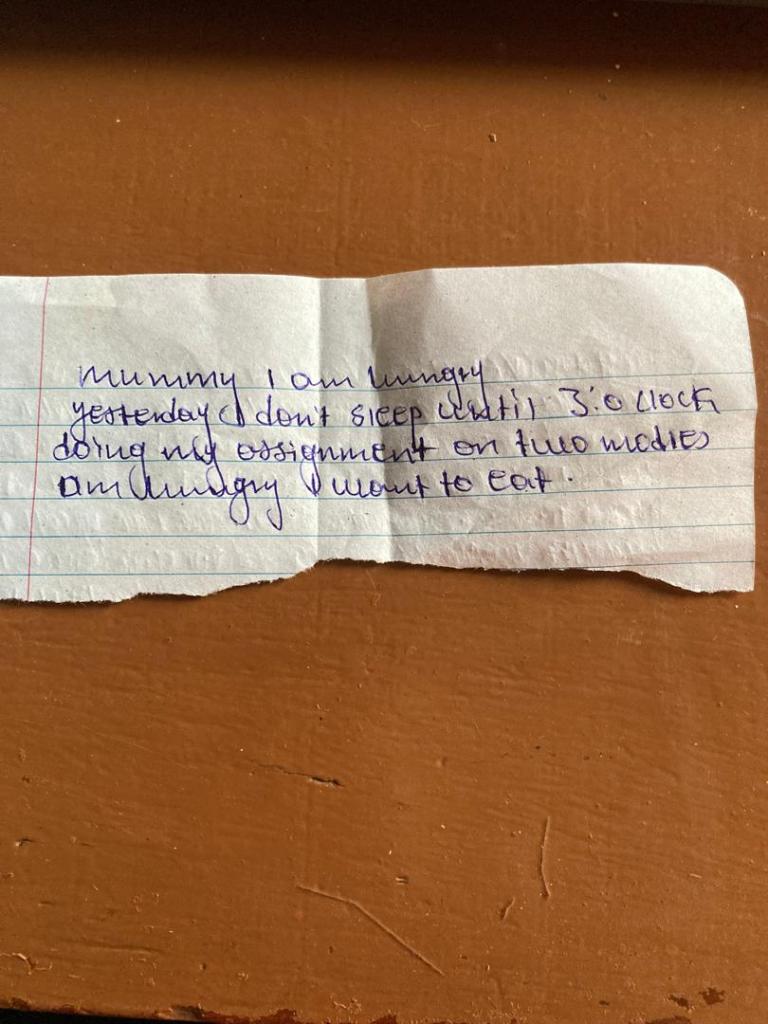 mummy I am hungry
yesterday I don't sleep until 3:0 clock
doing my assignment on two
am hungry I want to eat.